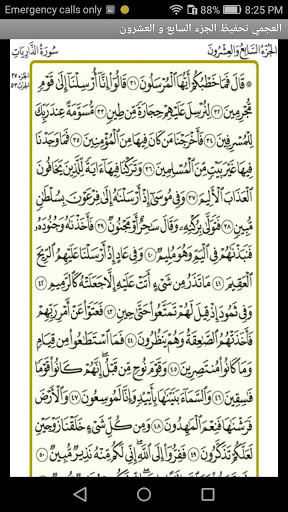 Emergency calls only 8:25 PM
العجمي تحفيظ الجزء السابع و العشرون
سورة الذاريات الجزء السابع والعشرون
۞ قَالَ فَمَا خَطْبُكُمْ أَيُّهَا الْمُرْسَلُونَ ٣١ قَالُوا إِنَّا أُرْسِلْنَا إِلَى قَوْمٍ
مُجْرِمِينَ ٣٢ لِنُرْسِلَ عَلَيْهِمْ حِجَارَةً مِنْ طِينٍ ٣٣ مُسَوَّمَةً عِنْدَ رَبِّكَ
لِلْمُسْرِفِينَ ٣٤ فَأَخْرَجْنَا مَنْ كَانَ فِيهَا مِنَ الْمُؤْمِنِينَ ٣٥ فَمَا وَجَدْنَا
فِيهَا غَيْرَ بَيْتٍ مِنَ الْمُسْلِمِينَ ٣٦ وَتَرَكْنَا فِيهَا آيَةً لِلَّذِينَ يَخَافُونَ
الْعَذَابَ الْأَلِيمَ ٣٧ وَفِي مُوسَى إِذْ أَرْسَلْنَاهُ إِلَى فِرْعَوْنَ بِسُلْطَانٍ
مُبِينٍ ٣٨ فَتَوَلَّى بِرُكْنِهِ وَقَالَ سَاحِرٌ أَوْ مَجْنُونٌ ٣٩ فَأَخَذْنَاهُ وَجُنُودَهُ
فَنَبَذْنَاهُمْ فِي الْيَمِّ وَهُوَ مُلِيمٌ ٤٠ وَفِي عَادٍ إِذْ أَرْسَلْنَا عَلَيْهِمُ الرِّيحَ
الْعَقِيمَ ٤١ مَا تَذَرُ مِنْ شَيْءٍ أَتَتْ عَلَيْهِ إِلَّا جَعَلَتْهُ كَالرَّمِيمِ ٤٢
وَفِي ثَمُودَ إِذْ قِيلَ لَهُمْ تَمَتَّعُوا حَتَّى حِينٍ ٤٣ فَعَتَوْا عَنْ أَمْرِ رَبِّهِمْ
فَأَخَذَتْهُمُ الصَّاعِقَةُ وَهُمْ يَنْظُرُونَ ٤٤ فَمَا اسْتَطَاعُوا مِنْ قِيَامٍ
وَمَا كَانُوا مُنْتَصِرِينَ ٤٥ وَقَوْمَ نُوحٍ مِنْ قَبْلُ إِنَّهُمْ كَانُوا قَوْمًا
فَاسِقِينَ ٤٦ وَالسَّمَاءَ بَنَيْنَاهَا بِأَيْيدٍ وَإِنَّا لَمُوسِعُونَ ٤٧ وَالْأَرْضَ
فَرَشْنَاهَا فَنِعْمَ الْمَاهِدُونَ ٤٨ وَمِنْ كُلِّ شَيْءٍ خَلَقْنَا زَوْجَيْنِ
لَعَلَّكُمْ تَذَكَّرُونَ ٤٩ فَفِرُّوا إِلَى اللَّهِ إِنِّي لَكُمْ مِنْهُ نَذِيرٌ مُبِينٌ ٥٠